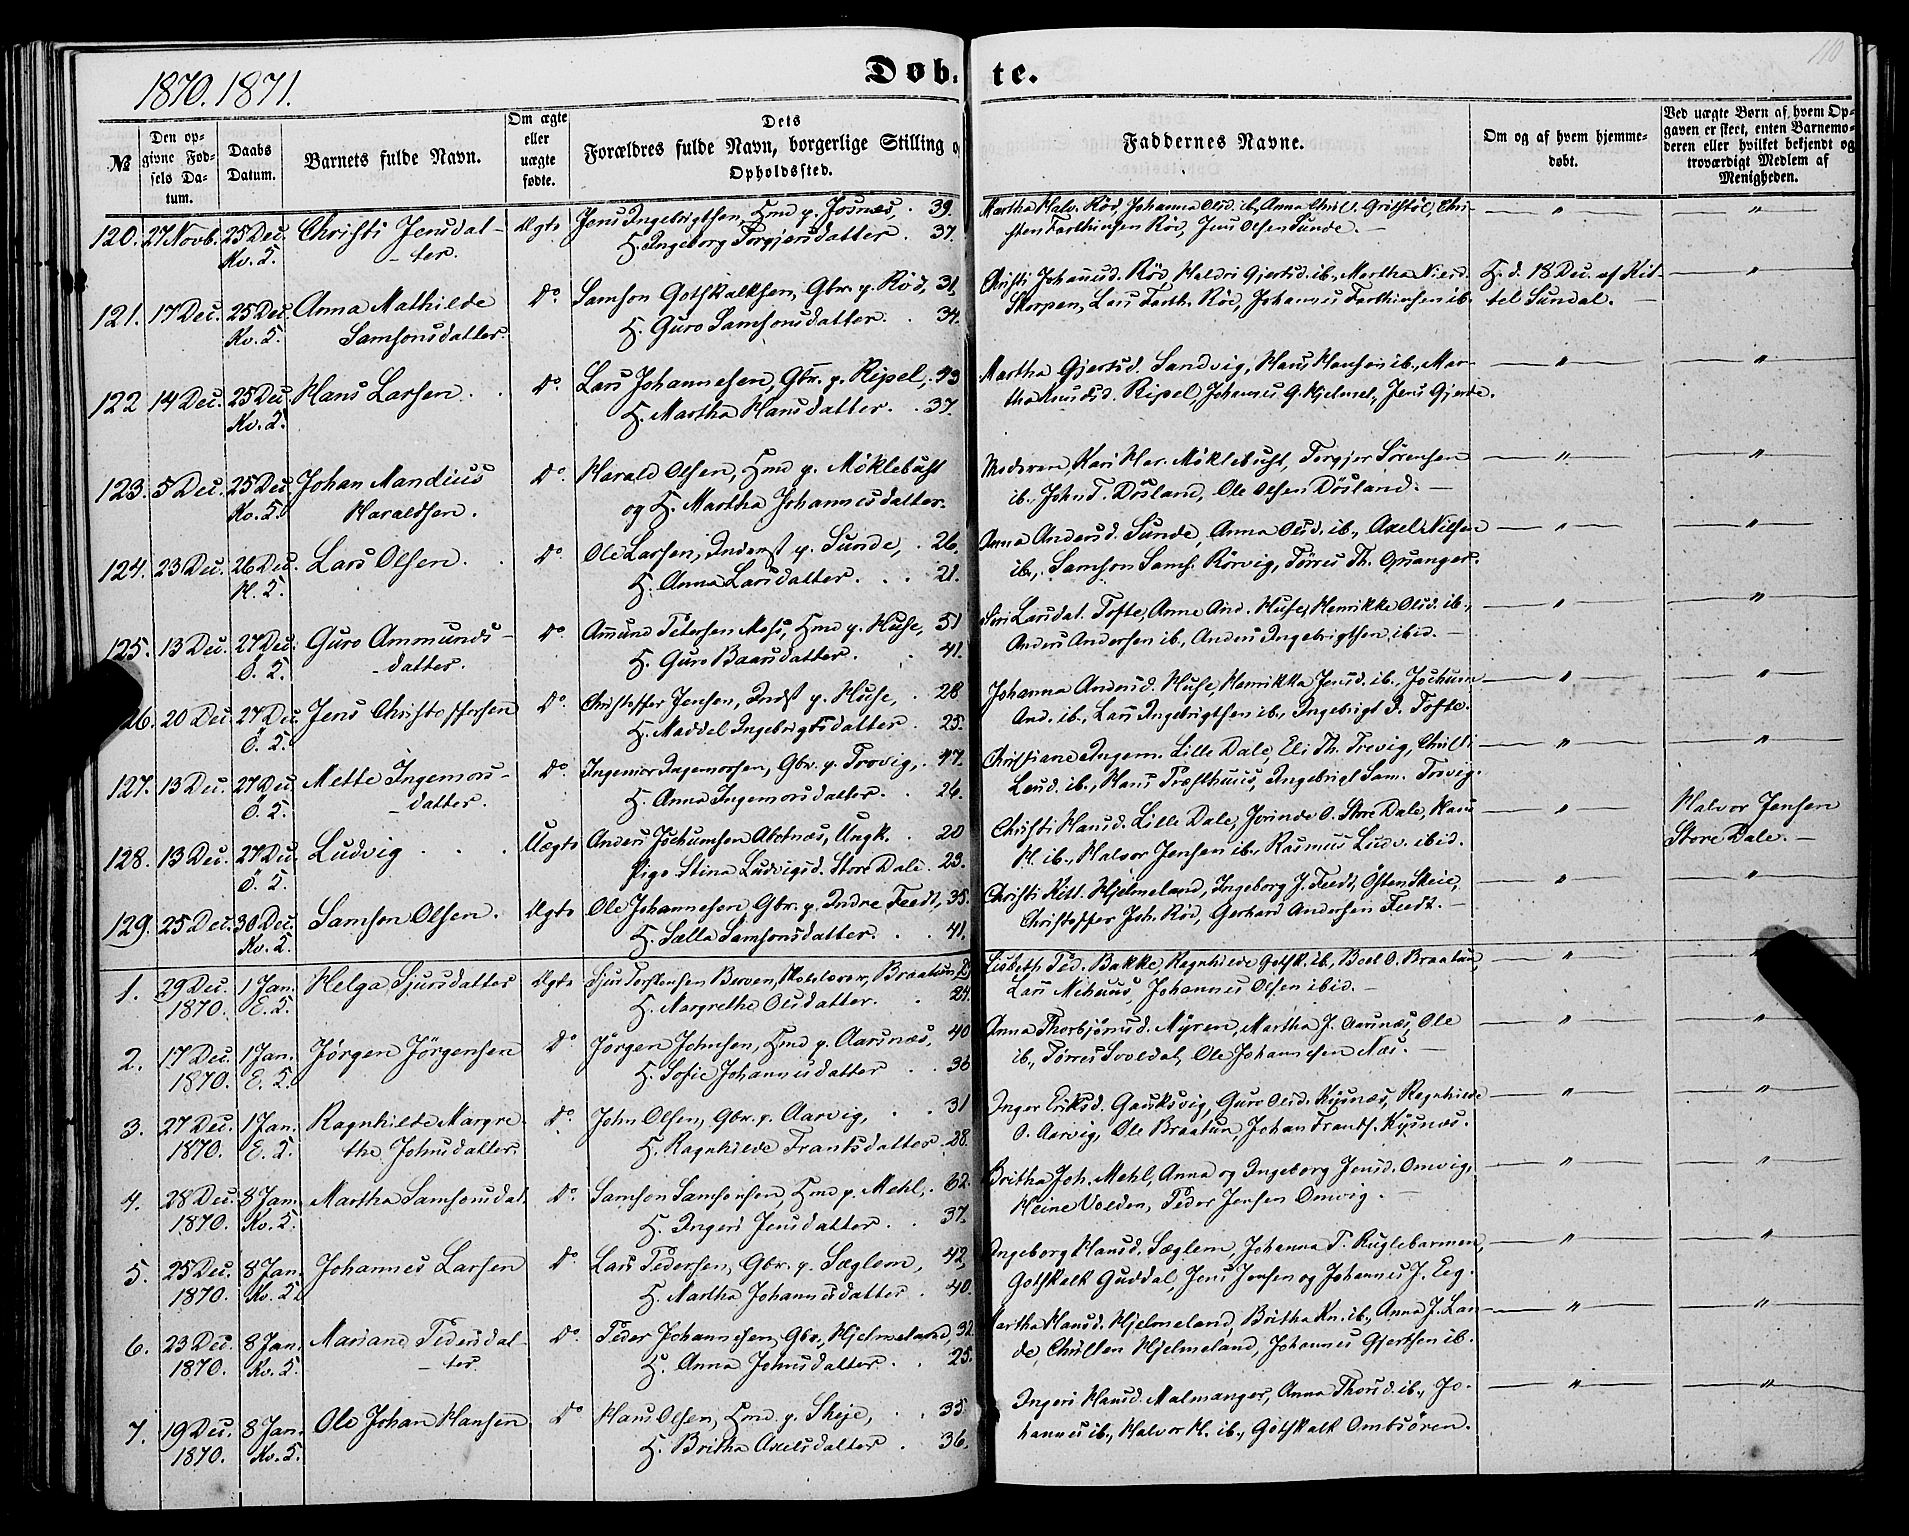 110
1870. 1871.
Døb- te.
№
Den opgivne Fødsels Datum.
Daabs Datum.
Barnets fulde Navn.
Om ægte eller uægte fødte.
Dets Forældres fulde Navn, borgerlige Stilling og Opholdssted.
Faddernes Navne.
Om og af hvem hjemmedøbt.
Ved uægte Børn af hvem Opgaven er skeet, enten Barnemoderen eller hvilket bekjendt og troværdigt Medlem af Menigheden.
120. 27 Novb. 25 Dec. Kv. S. Christi Jensdatter. Ægte
Jens Ingebrigtsen, Hmd p. Josnæs, 39.
H. Ingeborg Torgjersdatter. 37.
Martha Halv. Röd, Johanna Olsd. ib., Anna Christ. Gritstöl, Christen Farthinsen Röd, Jens Olsen Sunde. —
121. 17 Dec. 25 Dec. Kv. S. Anna Mathilde Samsonsdatter. Do
Samson Gotskalksen, Gbr. p. Röd, 31.
H. Guro Samsonsdatter. 34.
Christi Johannsd. Röd, Haldri Gjertsd. ib., Martha Nilsd. Skorpen, Lars Farth. Röd, Johannes Farthinsen ib.
H. d. 18 Dec. af Kittel Sundal.
122 14 Dec. 25 Dec. Kv. S. Hans Larsen. Do
Lars Johannesen, Gbr. p. Ripel, 43
H. Martha Hansdatter. 37.
Martha Gjertsd. Sandvig, Hans Hansen ib., Martha Knudsd. Ripel, Johannes G. Hjelmel., Jens Gjerde.
123. 5 Dec. 25 Dec. Kv. S. Johan Mandius Haraldsen. Do
Harald Olsen, Hmd p. Möklebust
og H. Martha Johannesdatter.
Moderen, Kari Har. Möklebust, Torgjer Sörensen ib., John T. Dösland, Ole Olsen Dösland. —
124. 23 Dec. 26 Dec. H. S. Lars Olsen. Do
Ole Larsen, Inderst p. Sunde, 26.
H. Anna Larsdatter. 21.
Anna Andersd. Sunde, Anna Olsd. ib., Axel Nilsen ib., Samson Sams. Rörvig, Törres Th. Qvanger.
125. 13 Dec. 27 Dec. Ö. S. Guro Ammundsdatter. Do
Ammund Petersen Moss, Hmd p. Huse, 51
H. Guro Baarsdatter. 41.
Siri Larsdat. Tofte, Anne And. Huse, Henrikke Olsd. ib., Anders Andersen ib., Anders Ingebrigtsen ibid. —
126. 20 Dec. 27 Dec. Ö. S. Jens Christoffersen Do
Christoffer Jensen, Indst p. Huse, 28
H. Maddel Ingebrigtsdatter. 25.
Johanna Andersd. Huse, Henrikka Jensd. ib., Jochum And. ib., Lars Ingebrigtsen ib., Ingebrigt P. Tofte.
127. 13 Dec. 27 Dec Ö. S. Mette Ingemorsdatter. Do
Ingemor Ingemorsen, Gbr. p. Trovig, 47.
H. Anna Ingemorsdatter. 26.
Christiane Ingem. Lille Dale, Eli Th. Trevig, Christi Lersd. ib., Hans Præsthuus, Ingebrigt Sam. Trovig.
128. 13 Dec. 27 Dec. Ö. S. Ludvig Uægte
Anders Jochumsen Abotnæs, Ungk. 20
Pige Stina Ludvigsd. Store Dale. 23.
Christi Hansd. Lille Dale, Jorinde O. Store Dale, Hans H. ib., Halvor Jensen ib., Rasmus Ludv. ibid.
Halvor Jensen Store Dale. —
129. 25 Dec. 30 Dec. Kv. S. Samson Olsen. Ægte
Ole Johannesen, Gbr. p. Indre Feedt, 35.
H. Sælla Samsonsdatter. 41.
Christi Kitt. Hjelmeland, Ingeborg J. Feedt, Östen Skeie, Christoffer Joh. Röd, Gerhard Andersen Feedt. —
1. 29 Dec. 1870. 1 Jan. E. S. Helga Sjursdatter Ægte
Sjur Torstensen Berven, Skolelærer, Braatun,
H. Margrethe Olsdatter. 24.
Lisbeth Ped. Bakke, Ragnhilde Gotsk. ib., Boel O. Braatun, Lars Nehuus, Johannes Olsen ibid. —
2. 17 Dec. 1870. 1 Jan. E. S. Jörgen Jörgensen Do
Jörgen Johnsen, Hmd p. Aarsnæs, 40
H. Sofie Johannesdatter 36
Anna Thorbjörnsd. Myren, Martha J. Aarsnæs, Ole ib., Törres Svoldal, Ole Johannesen Næs. —
3. 27 Dec. 1870. 1 Jan. E. S. Ragnhilde Margrethe Johnsdatter. Do
John Olsen, Gbr. p. Aarvig, 31
H. Ragnhilde Frantsdatter. 28.
Inger Eriksd. Gauksvig, Guro Olsd. Kysnæs, Ragnhilde O. Aarvig, Ole Braatun, Johan Frants. Kysnæs.
4. 28 Dec. 1870. 8 Jan. Kv. S. Martha Samsonsdat. Do
Samson Samsonsen, Hmd p. Mehl, 62.
H. Ingeri Jensdatter. 37.
Britha Joh. Mehl, Anna og Ingeborg Jensd. Omvig, Heine Volden, Peder Jensen Omvig. —
5. 25 Dec. 1870. 8 Jan. Kv. S. Johannes Larsen Do
Lars Pedersen, Gbr. p. Sæglem, 42,
H. Martha Johannesdatter 40.
Ingeborg Hansd. Sæglem, Johanna T. Ruglebarmen, Gotskalk Guddal, Jens Jensen og Johannes J. Eeg.
6. 23 Dec. 1870. 8 Jan. Kv. S. Mariane Pedersdatter Do
Peder Johannesen, Gbr., Hjelmeland, 32
H. Anna Johnsdatter. 25.
Martha Hansd. Hjelmeland, Britha Kn. ib., Anna J. Lande, Christen Hjelmeland, Johannes Gjertsen ib.
7. 19 Dec. 1870. 8 Jan. Kv. S. Ole Johan Hansen Do
Hans Olsen, Hmd. p. Skeje, 35.
H. Britha Axelsdatter. 36.
Ingeri Hansd. Malmanger, Anna Thorsd. ib., Johannes ib., Halvor H. ib., Gotskalk Ombsören.